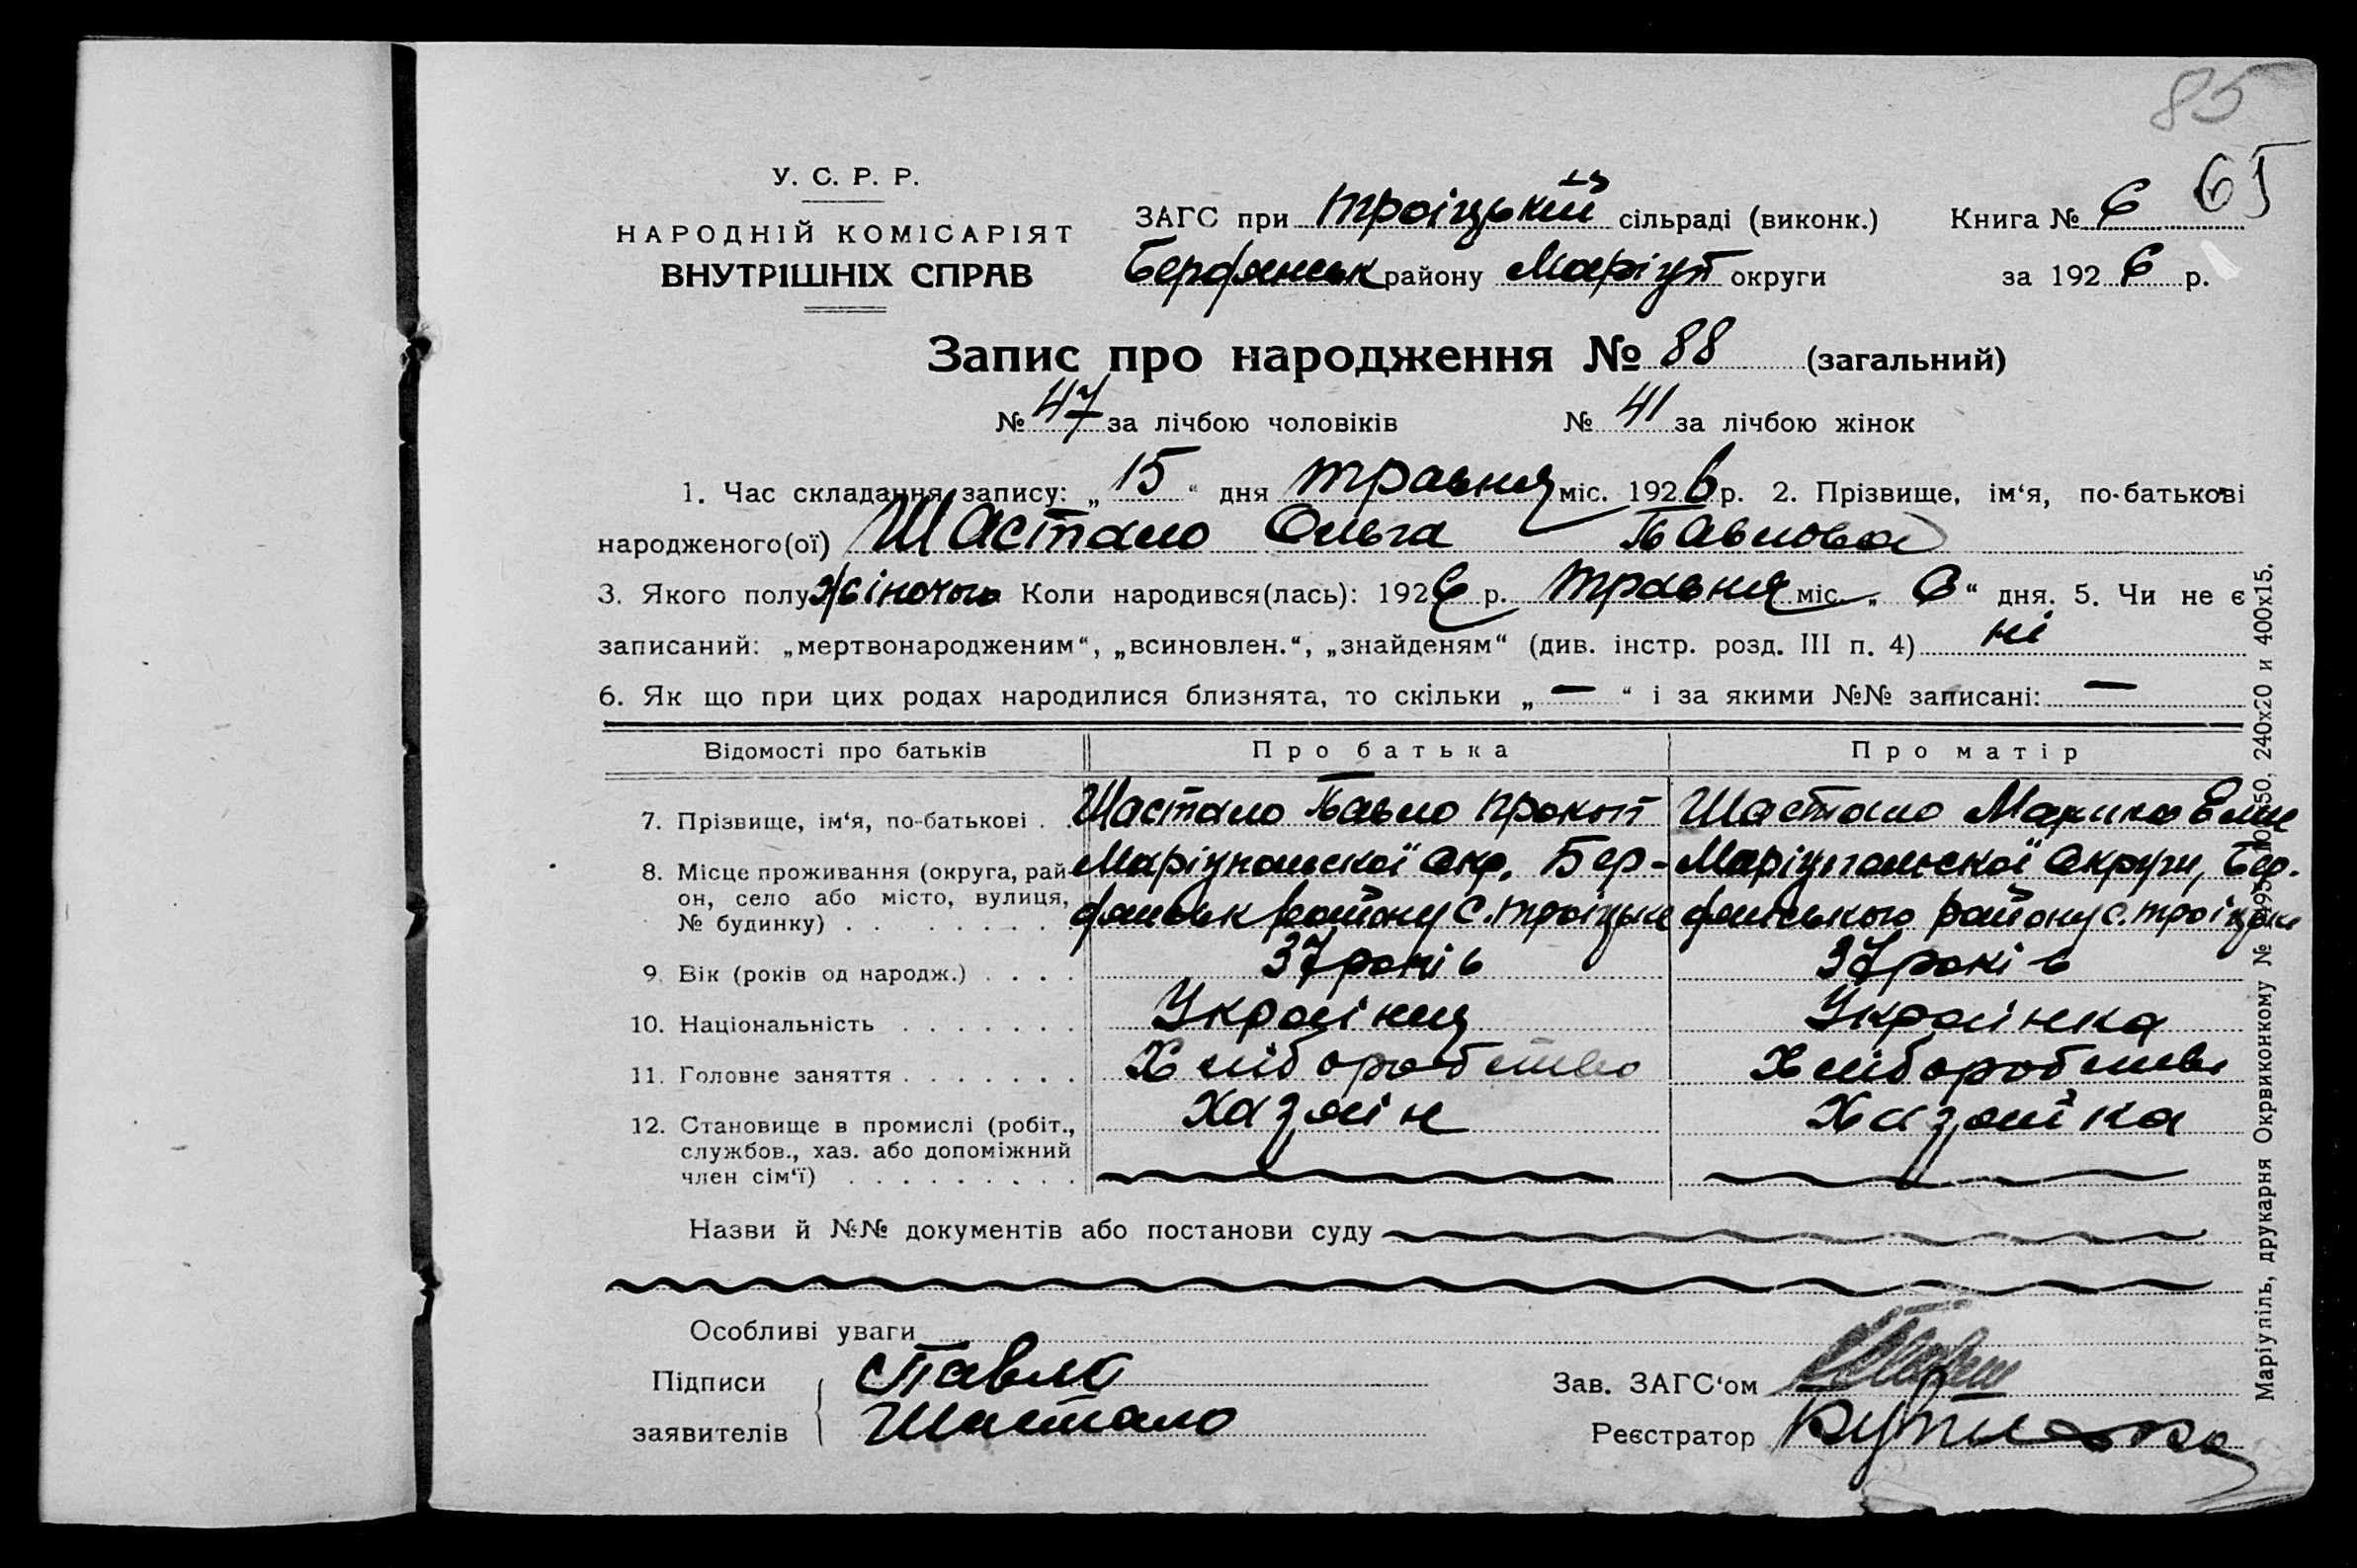 85
65
У. С. Р. Р.
НАРОДНІЙ КОМІСАРІЯТ
ВНУТРІШНІХ СПРАВ
ЗАГС при Троіцькій сільраді (виконк.) Книга № 6
Бердянськ району Маріуп округи за 1926 р.
Запис про народження № 88 (загальний)
№ 47 за лічбою чоловіків № 41 за лічбою жінок
1. Час складання запису: „15“ дня травня міс. 1926 р. 2. Прізвище, ім‘я, по-батькові
народженого(ої) Шастало Ольга Павлова
3. Якого полу жіночого Коли народився(лась): 1926 р. травня міс. „6“ дня. 5. Чи не є
записаний: „мертвонародженим“, „всиновлен.“, „знайденям“ (див. інстр. розд. III п. 4) ні
6. Як що при цих родах народилися близнята, то скільки „—“ і за якими №№ записані: —
Відомості про батьків Про батька Про матір
7. Прізвище, ім‘я, по-батькові . Шастало Павло Прокоп Шастало Марина
8. Місце проживання (округа, рай- Маріупольскої Окр. Бер- Маріупольскої Округи, Бер.
он, село або місто, вулиця, дянськ району с. Троіцьке дянського району с. Троіцьке
№ будинку) . . . . . . . .
9. Вік (років од народж.) . . . . 37 років 37 років
10. Національність . . . . . . . Українец Українка
11. Головне заняття . . . . . . . Хліборобство Хліборобство
12. Становище в промислі (робіт., Хазяїн Хазяйка
службов., хаз. або допоміжний
член сім‘ї) . . . . . . . . .
Назви й №№ документів або постанови суду
Особливі уваги
Підписи Павло Зав. ЗАГС‘ом
заявителів Шастало Реєстратор
Маріупіль, друкарня Окрвиконкому № 240х20 и 400х15.